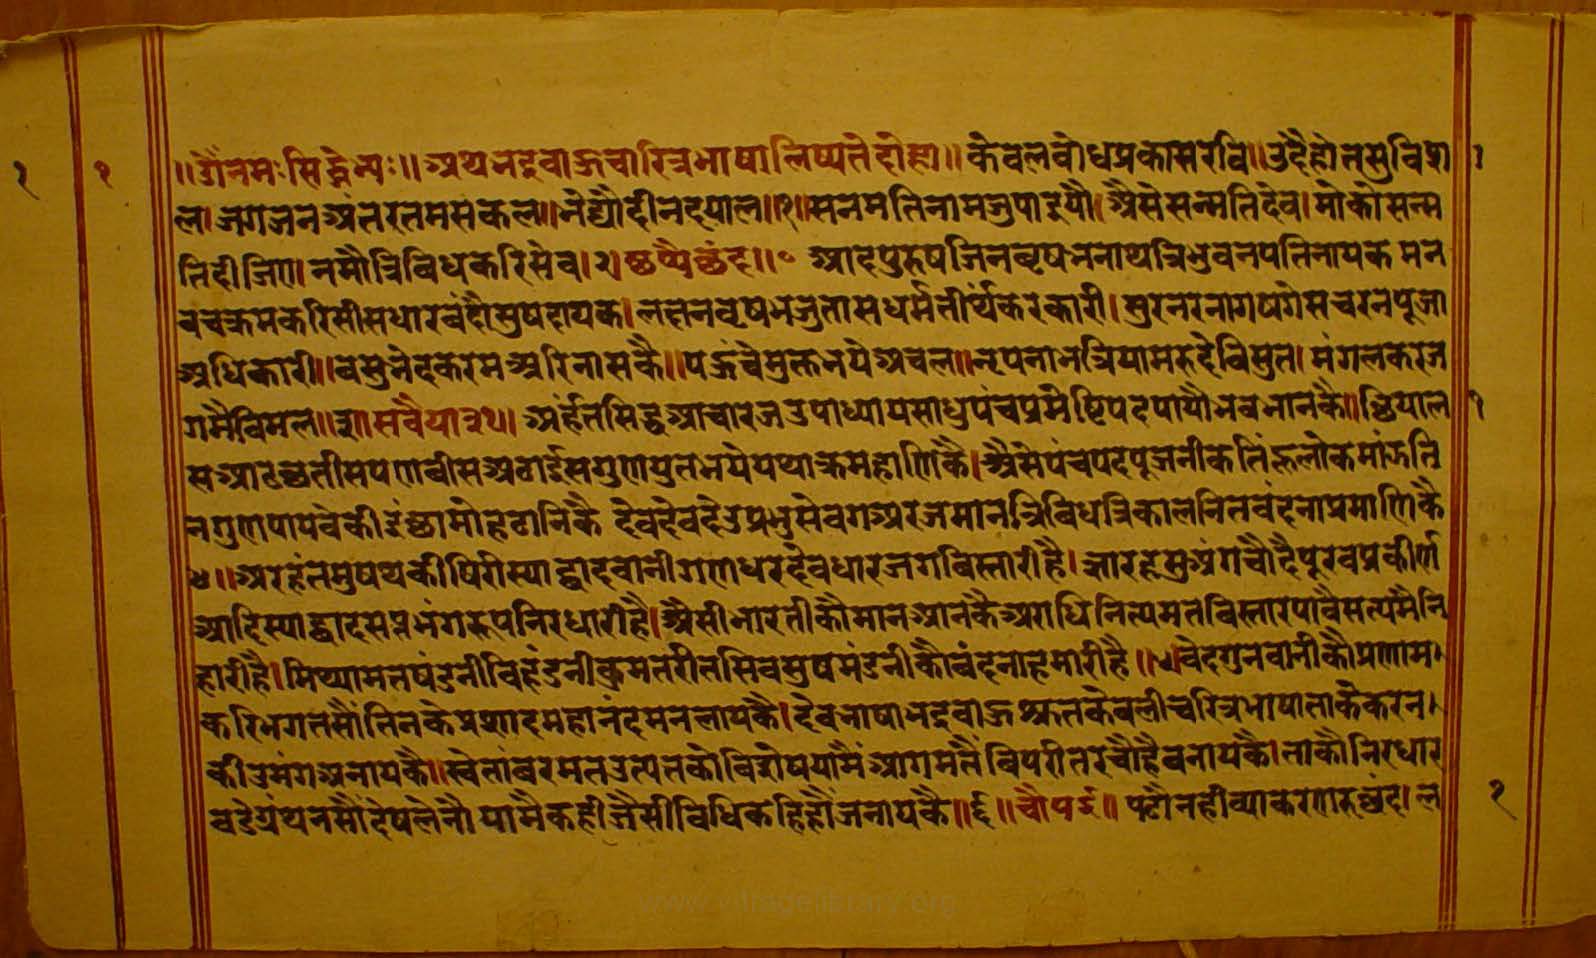 ॥ॐनमःसिद्धेभ्यः॥अथभद्रबाऊचारित्रभाषालिष्यतेदोहा॥केवलबोधप्रकासरवि॥उदैहोतसुविशा
ल।जगजनअंतरतमसकल॥भेद्यौदीनदयाल॥१॥सनमतिनामजुपाइयौ।अैसेसन्मतिदेव।मोकोसन्म
तिदीजिए।नमौत्रिविधकरिसेव।२।छप्पैछंद॥॰आदपुरुषजिनवृषभनाथत्रिभुवनपतिनायकमन
बचक्रमकरिसीसधारबंदौसुषदायक।लछनवृषभजुतासधर्मतीर्थंकरकारी।सुरनरनागषगेसचरनपूजा
अधिकारी॥वसुभेदकरमअरिनासकै॥पऊंचेमुक्तभयेअचल॥नृपनाभत्रियामरुदेविसुत।मंगलकरज
गमैविमल॥३॥सवैया३१॥अर्हंतसिद्धआचारजउपाध्यायसाधुपंचप्रमेष्टिपदपायौभवभानकै॥छियाल
सआठछतीसपणवीसअठाईसगुणयुतभयेयथाक्रमहाणिकै।अैसेपंचपदपूजनीकतिंहूलोकमांऊति
नगुणपायवेकीइंछामोहठानिकै देवदेवदेउप्रभुसेवगअरजमानत्रिविधत्रिकालनितवंदनाप्रमाणिकै
४॥अरहंतमुषथकीषिरीस्याद्वादवानीगणधरदेवधारजगविस्तारीहै।ग्यारहसुअंगचौदैपूरवप्रकीर्ण
आदिस्याद्वादसप्तभंगरूपनिरधारीहै।अैसीभारतीकौमानआनकैअराधिनित्यमतविस्तारपावैसत्यमैनि
हारीहै।मिथ्यामतषंडनीविहंडनीकुमतरीतसिवसुषमंडनीकौबंदनाहमारीहै॥५॥वेदगुनवानीकौप्रणाम
करिभगतसौंतिनकेप्रशादमहानंदमनलायकै।देवभाषाभद्रबाऊश्रुतकेवलीचरित्रभाषाताकेकरन
कीउमंगअनायकै॥स्वेतांबरमतउत्पतकोविशेषयामैंआगमतैंविपरीतरचौहैबनायकै।ताकौनिरधार
बडेग्रंथनसौंदेषलेनौयामैकहीजैसीविधिकहिहौंजनायकै॥६॥चौपई॥पढौनहीव्याकरणरुछंद।ल